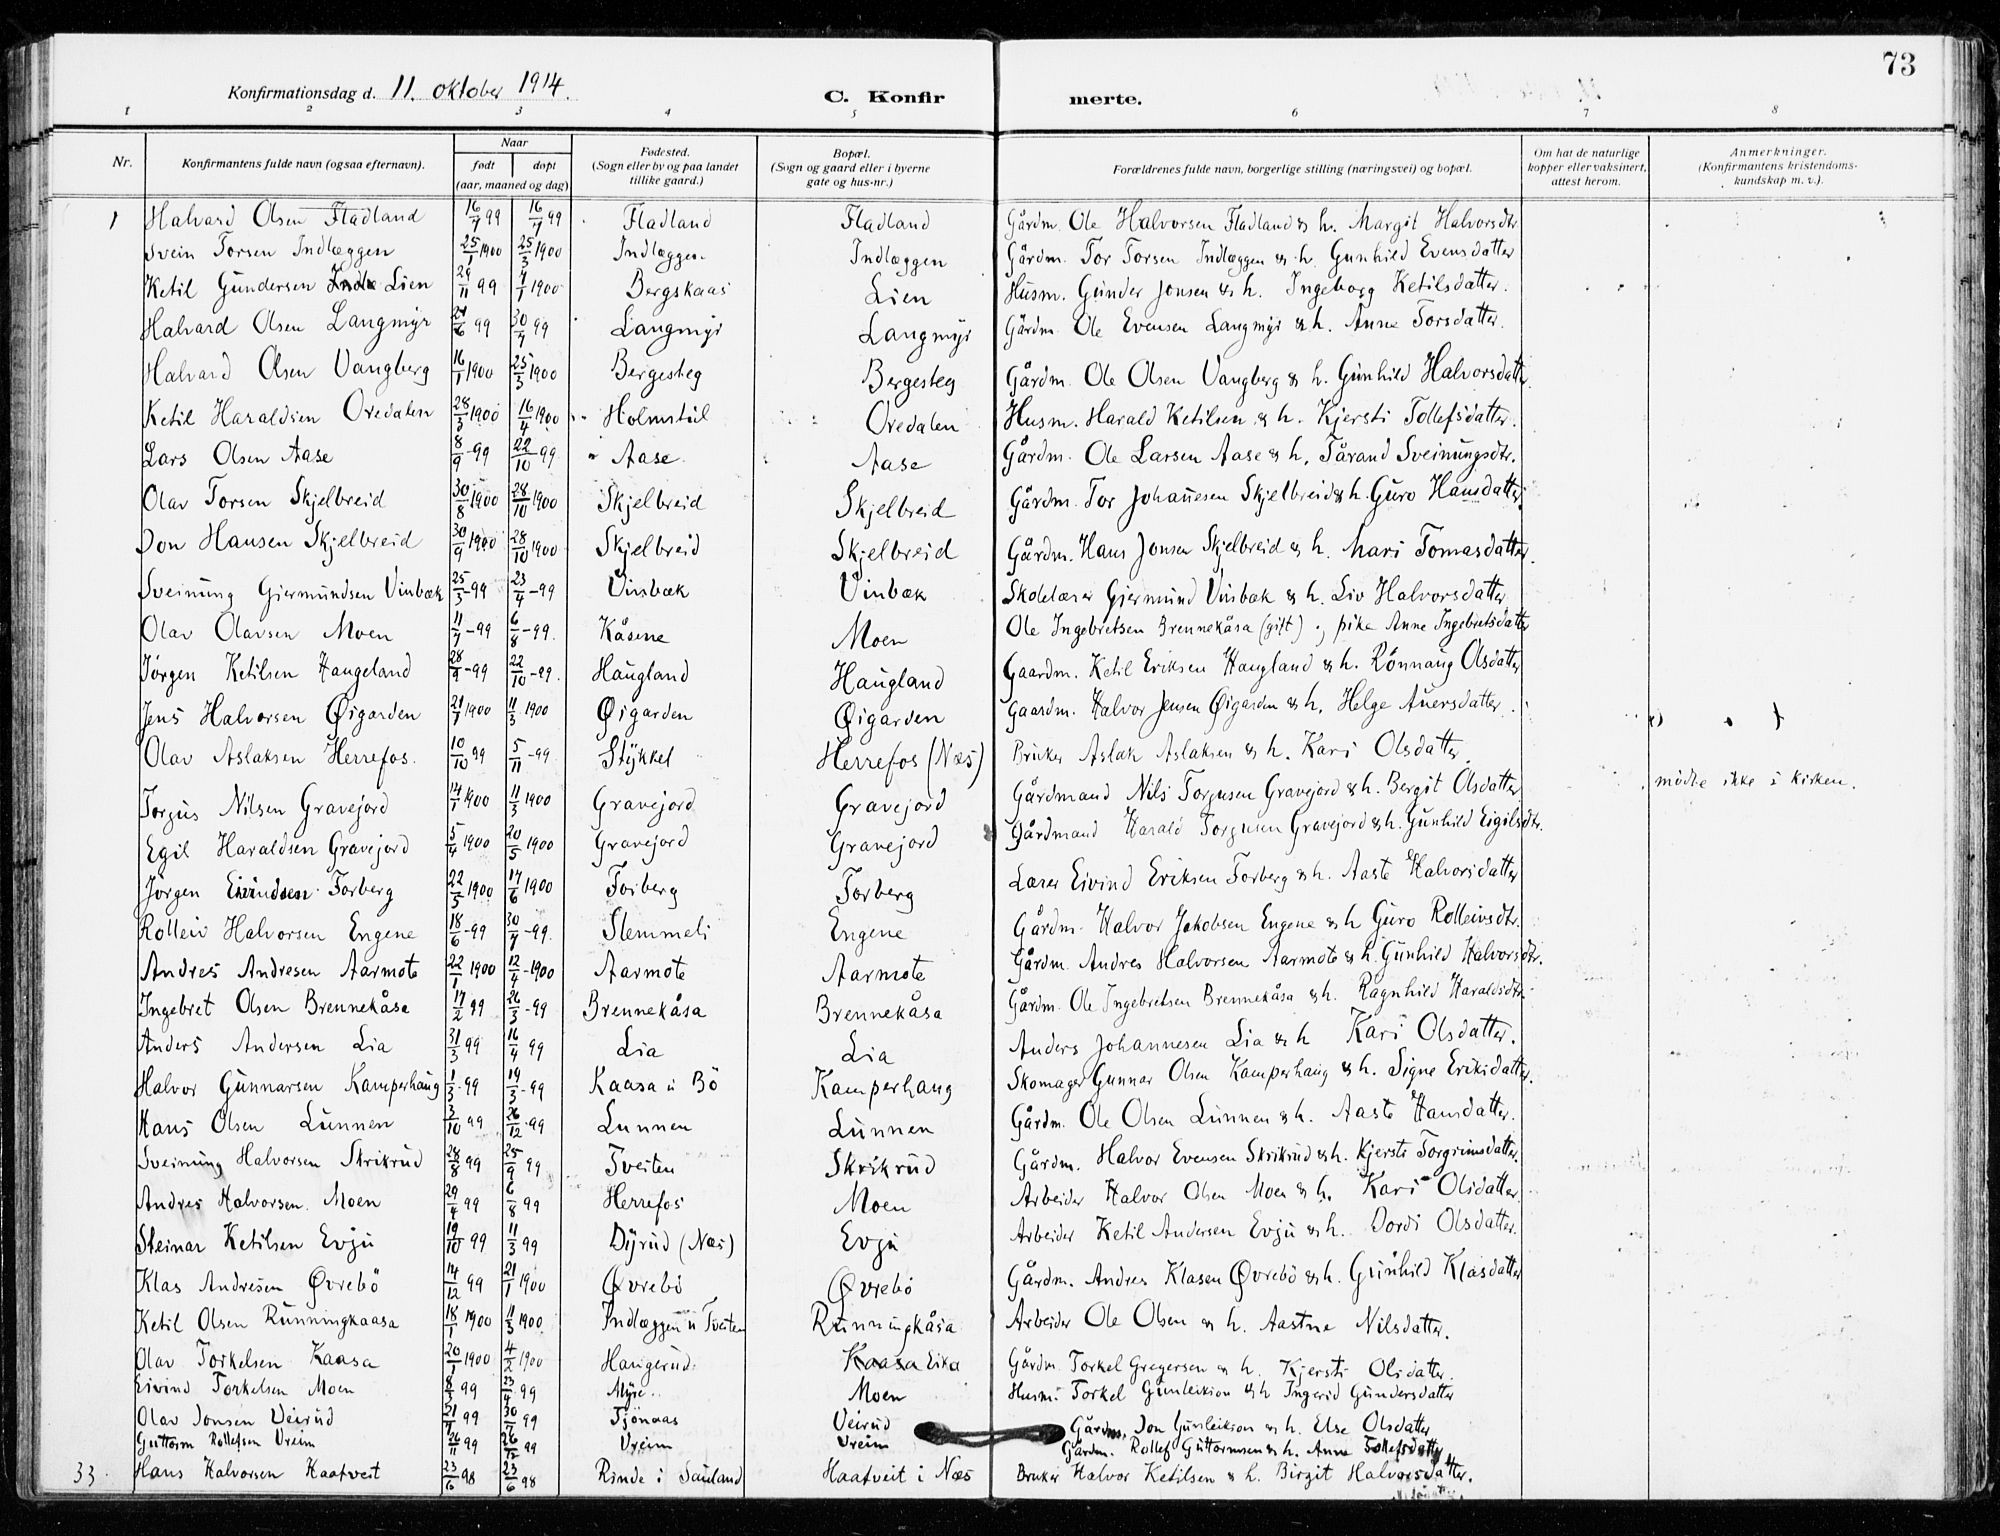 73
Konfirmationsdag d. 11. oktober 1914. C. Konfirmerte.
1 2 3 4 5 6 7 8
Nr. Konfirmantens fulde navn (ogsaa efternavn). Naar født døpt (aar, maaned og dag) Fødested. (Sogn eller by og paa landet tillike gaard.) Bopæl. (Sogn og gaard eller i byerne gate og hus-nr.) Forældrenes fulde navn, borgerlige stilling (næringsvei) og bopæl. Om hat de naturlige kopper eller vaksinert, attest herom. Anmerkninger. (Konfirmantens kristendomskundskap m. v.).
1 Halvard Olsen Fladland 16/7 99 16/7 99 Fladland Fladland Gårdm. Ole Halvorsen Fladland & h. Margit Halvorsdtr.
Svein Torsen Indlæggen 25/1 1900 25/3 1900 Indlæggen Indlæggen Gårdm. Tor Torsen Indlæggen & h. Gunhild Evensdatter
Ketil Gundersen Lien 29/11 99 7/1 1900 Bergskaas Lien Husm. Gunder Jonsen & h. Ingeborg Ketilsdatter.
Halvard Olsen Langmyr 24/6 99 30/7 99 Langmyr Langmyr Gårdm. Ole Evensen Langmyr & h. Anne Torsdatter.
Halvard Olsen Vangberg 16/1 1900 25/3 1900 Bergesteg Bergesteg Gårdm. Ole Olsen Vangberg & h. Gunhild Halvorsdatter.
Ketil Haraldsen Oredalen 28/3 1900 16/4 1900 Holmstul Oredalen Husm. Harald Ketilsen & h. Kjersti Tollefsdatter.
Lars Olsen Aase 8/9-99 22/10-99 Aase Aase Gårdm. Ole Larsen Aase & h. Tårand Sveinungsdtr.
Olav Torsen Skjelbreid 30/8 1900 28/10 1900 Skjelbreid Skjelbreid Gårdm. Tor Johannesen Skjelbreid & h. Guro Hansdatter.
Don Hansen Skjelbreid 30/9 1900 28/10 1900 Skjelbreid Skjelbreid Gårdm. Hans Jonsen Skjelbreid & h. Mari Tomasdatter.
Sveinung Gjermundsen Vinbæk 25/3-99 23/4-99 Vinbæk Vinbæk Skolelærer Gjermund Vinbæk & h. Liv Halvorsdatter
Olav Olavsen Moen 11/7-99 6/8-99. Kåsene Moen Ole Ingebretsen Brennekåsa (gift) og pike Anne Ingebretsdatter
Jörgen Ketilsen Haugeland 28/9-99 22/10-99. Haugland Haugland Gaardm. Ketil Eriksen Haugland & h. Rönnaug Olsdatter
Jens Halvorsen Øigarden 21/1 1900 11/3 1900 Øigarden Øigarden Gaardm. Halvor Jensen Øigarden & h. Helge Auersdatter.
Olav Aslaksen Herrefos. 10/10 99 5/11-99 Stykkel Herrefos (Næs) Bruker Aslak Aslaksen & h. Kari Olsdatter
Torjus Nilsen Gravejord 14/1 1900 11/3 1900 Gravejord Gravejord Gårdmand Nils Torjusen Gravejord & h. Bergit Olsdatter mødte ikke i kirken.
Egil Haraldsen Gravejord 5/4 1900 20/5 1900 Gravejord Gravejord Gårdmand Harald Torjusen Gravejord & h. Gunhild Eigilsdtr.
Jörgen Eivindsen Torberg 22/5 1900 17/6 1900 Torberg Torberg Lærer Eivind Eriksen Torberg & h. Aaste Halvorsdatter
Rolleiv Halvorsen Engene 18/6-99 30/7-99. Slemmeli Engene Gårdm. Halvor Jakobsen Engene & h Guro Rolleivsdtr.
Andres Andresen Aarmote 22/1 1900 12/4-1900 Aarmote Aarmote Gårdm. Andres Halvorsen Aarmote & h. Gunhild Halvorsdtr.
Ingebret Olsen Brennekåsa 17/2 99 26/3-99 Brennekåsa Brennekåsa Gårdm. Ole Ingebretsen Brennekåsa & h. Ragnhild Haraldsdtr
Anders Andersen Lia 31/3 99 16/4 99 Lia Lia Anders Johannesen Lia & h Kari Olsdatter.
Halvor Gunnarsen Kamperhaug 1/3-99 19/3-99 Kaasa u Bö Kamperhaug Skomager Gunnar Olsen Kamperhaug & h. Signe Eriksdatter.
Hans Olsen Lunnen 3/10 99 26/12-99 Lunnen Lunnen Gårdm. Ole Olsen Lunnen & h. Aaste Hansdatter.
Sveinung Halvorsen Skrikrud 28/8 99 25/9 99 Tveiten Skrikrud Gårdm. Halvor Evensen Skrikrud & h. Kjersti Torgrimsdatter.
Andres Halvorsen. Moen 29/4 99 6/8 99 Herrefos Moen Arbeider Halvor Olsen Moen & h. Kari Olsdatter
Steinar Ketilsen Evju 19/10 99 11/3 99 Dyrud (Næs) Evju Arbeider Ketil Andersen Evju & h. Dordi Olsdatter.
Klas Andresen Øvrebö 14/12 99 21/1 1900 Øvrebö Øvrebö Gårdm. Andres Klasen Øvrebö & h. Gunhild Klasdatter
Ketil Olsen Runningkaasa 18/1 1900 11/3 1900 Indlæggen u Tveiten Runningkåsa Arbeider Ole Olsen & h. Aastne Nilsdatter.
Olav Torkelsen Kaasa 20/1 1900 4/2 1900 Haugerud. Kaasa Eika Gårdm. Torkel Gregersen & h. Kjersti Olsdatter.
Eivind Torkelsen Moen 8/3 99 23/4 99 Myre Moen Husm. Torkel Gunleiksen & h Ingerid Gundersdatter
Olav Jonsen Veirud 21/7 99 30/7 99 Tjönaas Veirud Gårdm. Jon Gunleiksen & h. Else Olsdatter
Guttorm Rollefsen Vreim 26/11 99 26/12 99 Vreim Vreim Gårdm. Rollef Guttormsen & h. Anne Tollefsdatter
33. Hans Halvorsen Haatveit 23/6 98 23/6 98 Rinde i Sauland Haatveit i Næs Bruker Halvor Ketilsen & h. Birgit Halvorsdatter.